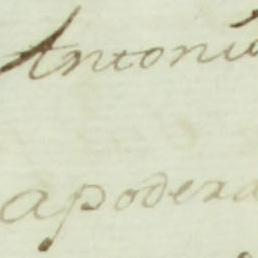 Antoni
apodera